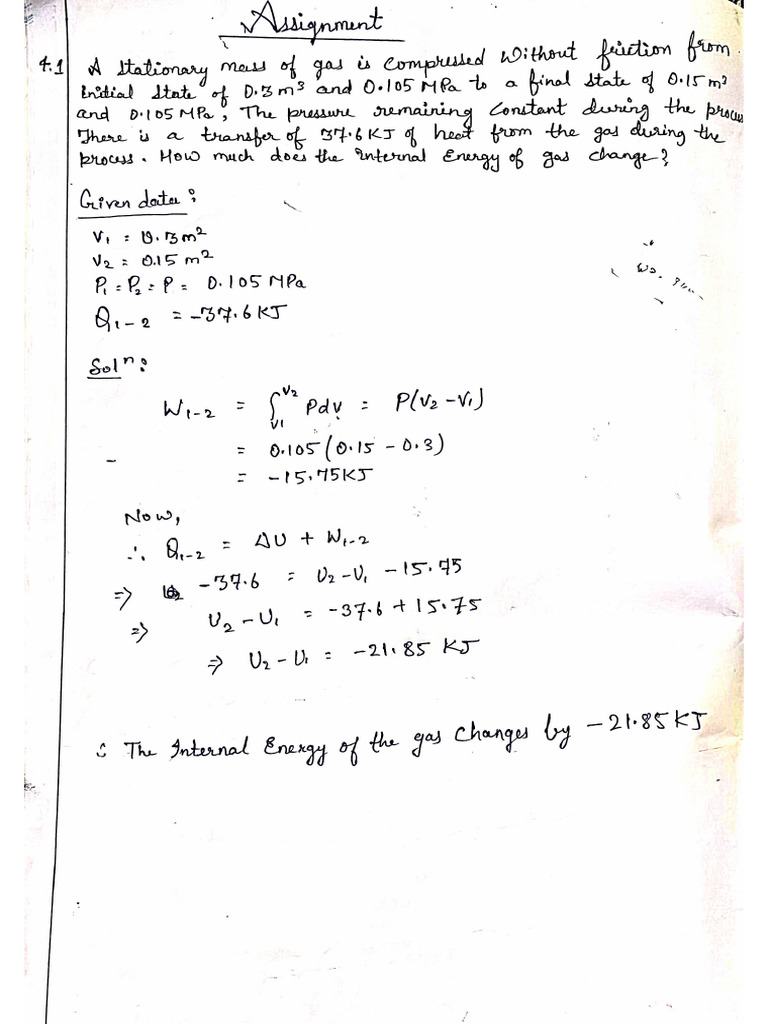 Assignment
4.1 A stationary mass of gas is compressed without friction from
initial state of 0.3 m³ and 0.105 MPa to a final state of 0.15 m³
and 0.105 MPa, The pressure remaining constant during the process
There is a transfer of 37.6 KJ of heat from the gas during the
process. How much does the internal Energy of gas change?
Given data:
V₁ = 0.3 m²
V₂ = 0.15 m²
P₁ = P₂ = P = 0.105 MPa
Q₁₋₂ = -37.6 KJ
Solⁿ:
W₁₋₂ = ∫ᵥ₁ⱽ² Pdv = P(V₂ - V₁)
= 0.105 (0.15 - 0.3)
= -15.75 KJ
Now,
∴ Q₁₋₂ = ΔU + W₁₋₂
⇒ -37.6 = U₂ - U₁ - 15.75
⇒ U₂ - U₁ = -37.6 + 15.75
⇒ U₂ - U₁ = -21.85 KJ
∴ The Internal Energy of the gas Changes by -21.85 KJ